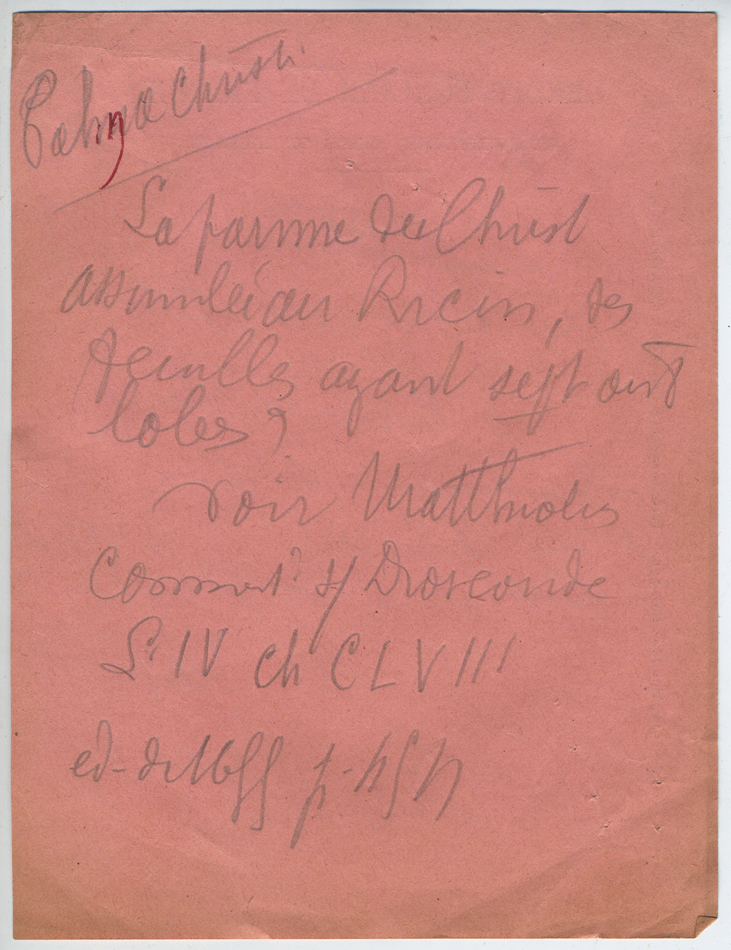 Palma Christi.
La paume du Christ
assimilée au Ricin, des
feuilles ayant sept ou 8
lobes ?
voir Matthiolis
Comment? s/ Dioscoride
L. IV ch CLVIII
ed- de